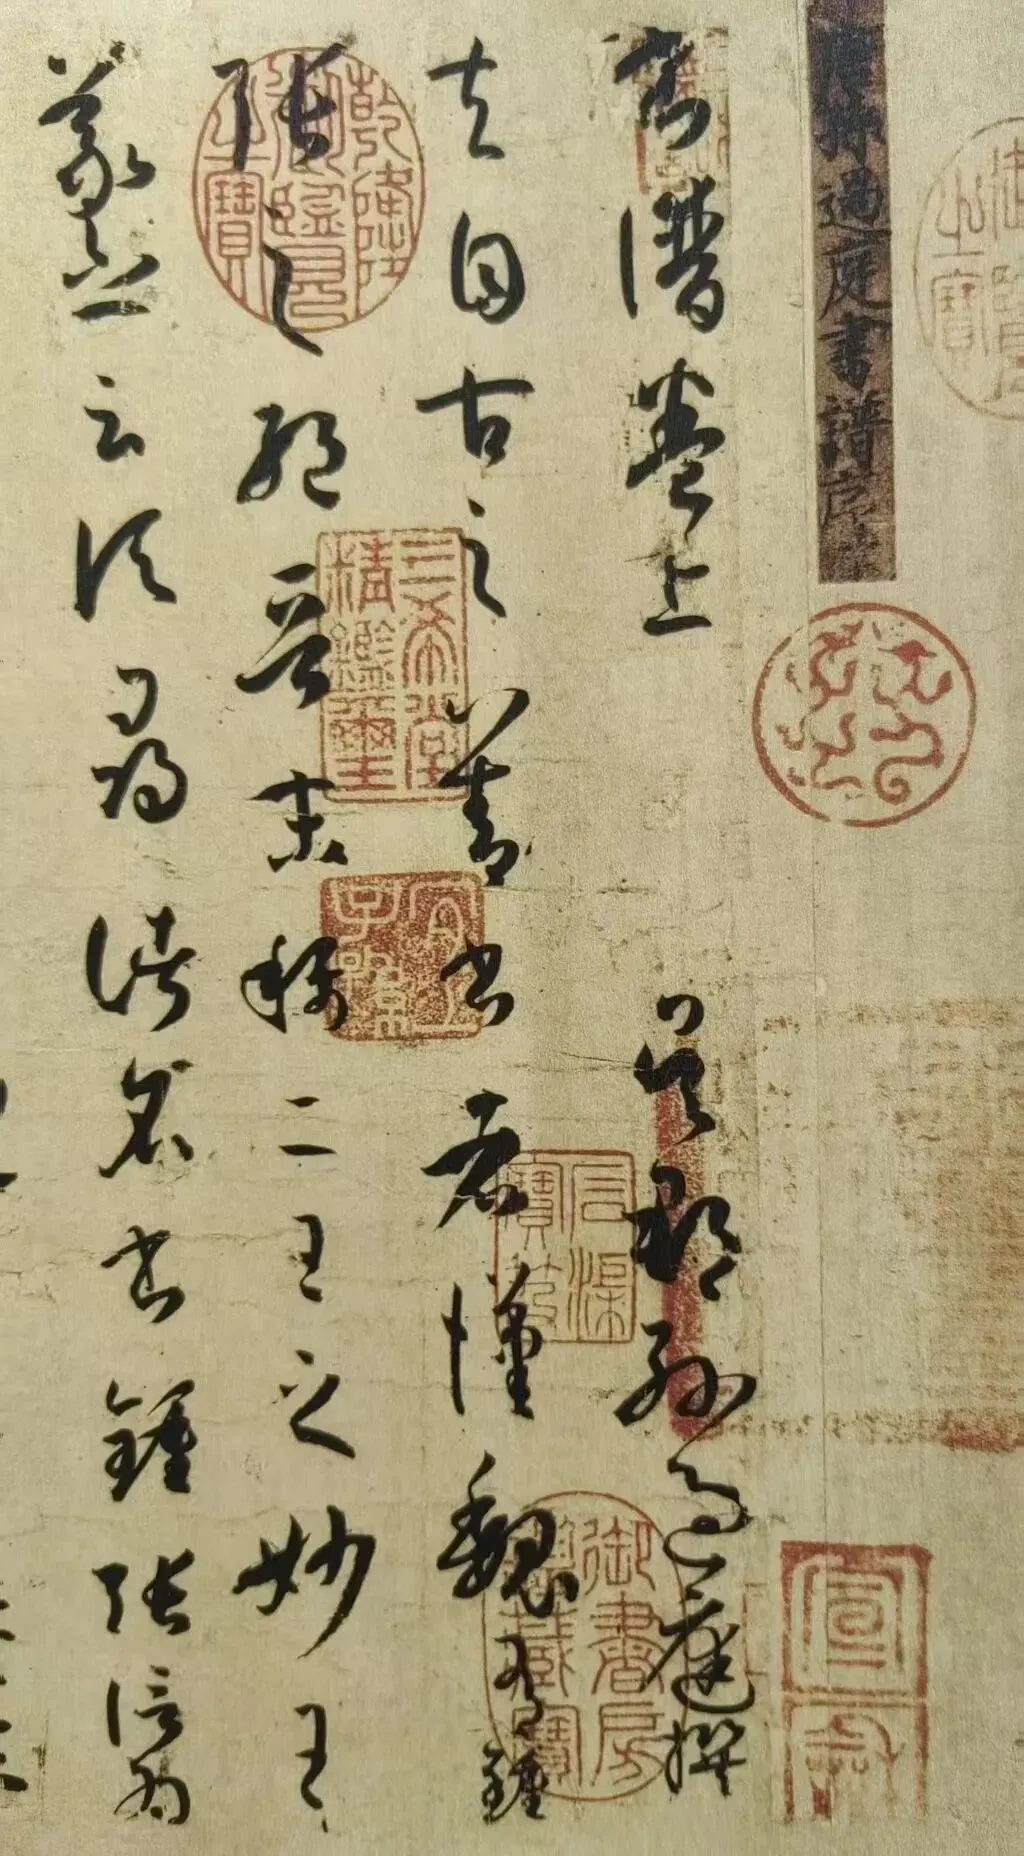 唐孫過庭書譜序
書譜卷上
吳郡孫過庭撰
夫自古之善書者漢魏有鍾
張之絕晉末稱二王之妙王
羲之云頃尋諸名書鍾張信為
乾隆御覽之寶
三希堂精鑑璽
宜子孫
石渠寶笈
御書房鑑藏寶
宣和
御覽之寶